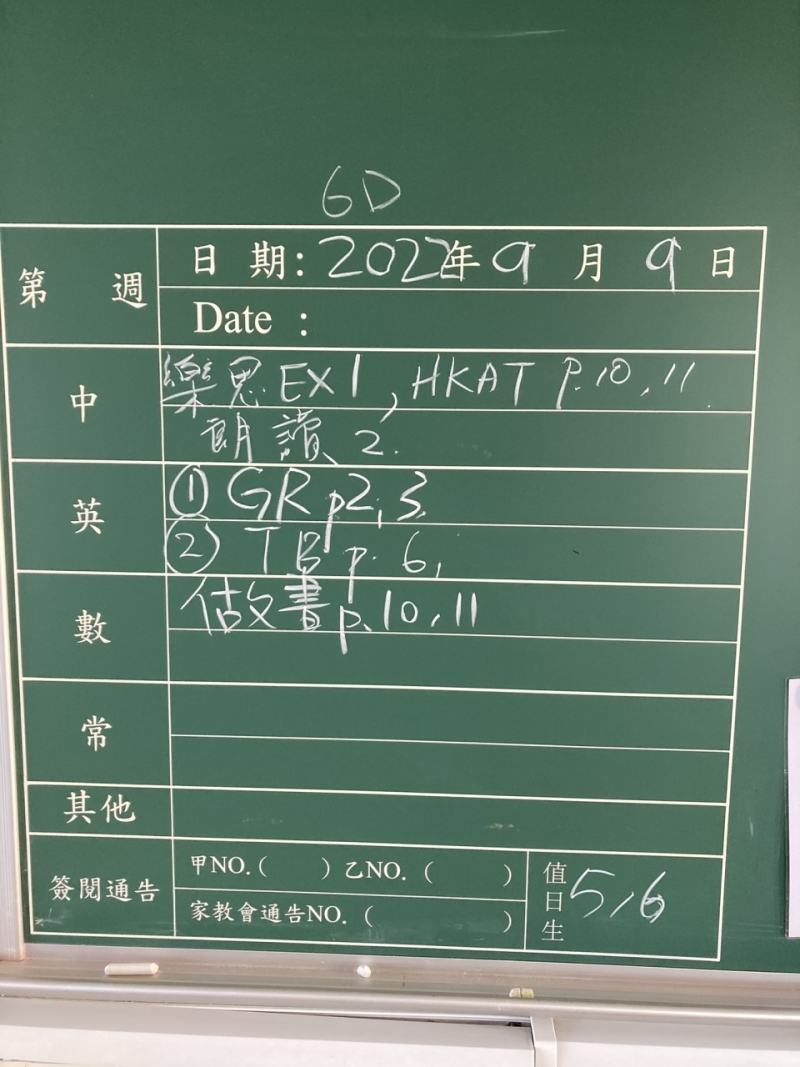 6D
第 週
日 期: 2022年 9 月 9 日
Date :
中
樂思 EX1, HKAT P.10, 11.
朗讀 2.
英
① GR p2, 3
② TB p. 6,
數
估文書 p.10, 11
常
其他
簽閱通告
甲NO.( ) 乙NO. ( )
家教會通告NO. ( )
值日生 5, 6